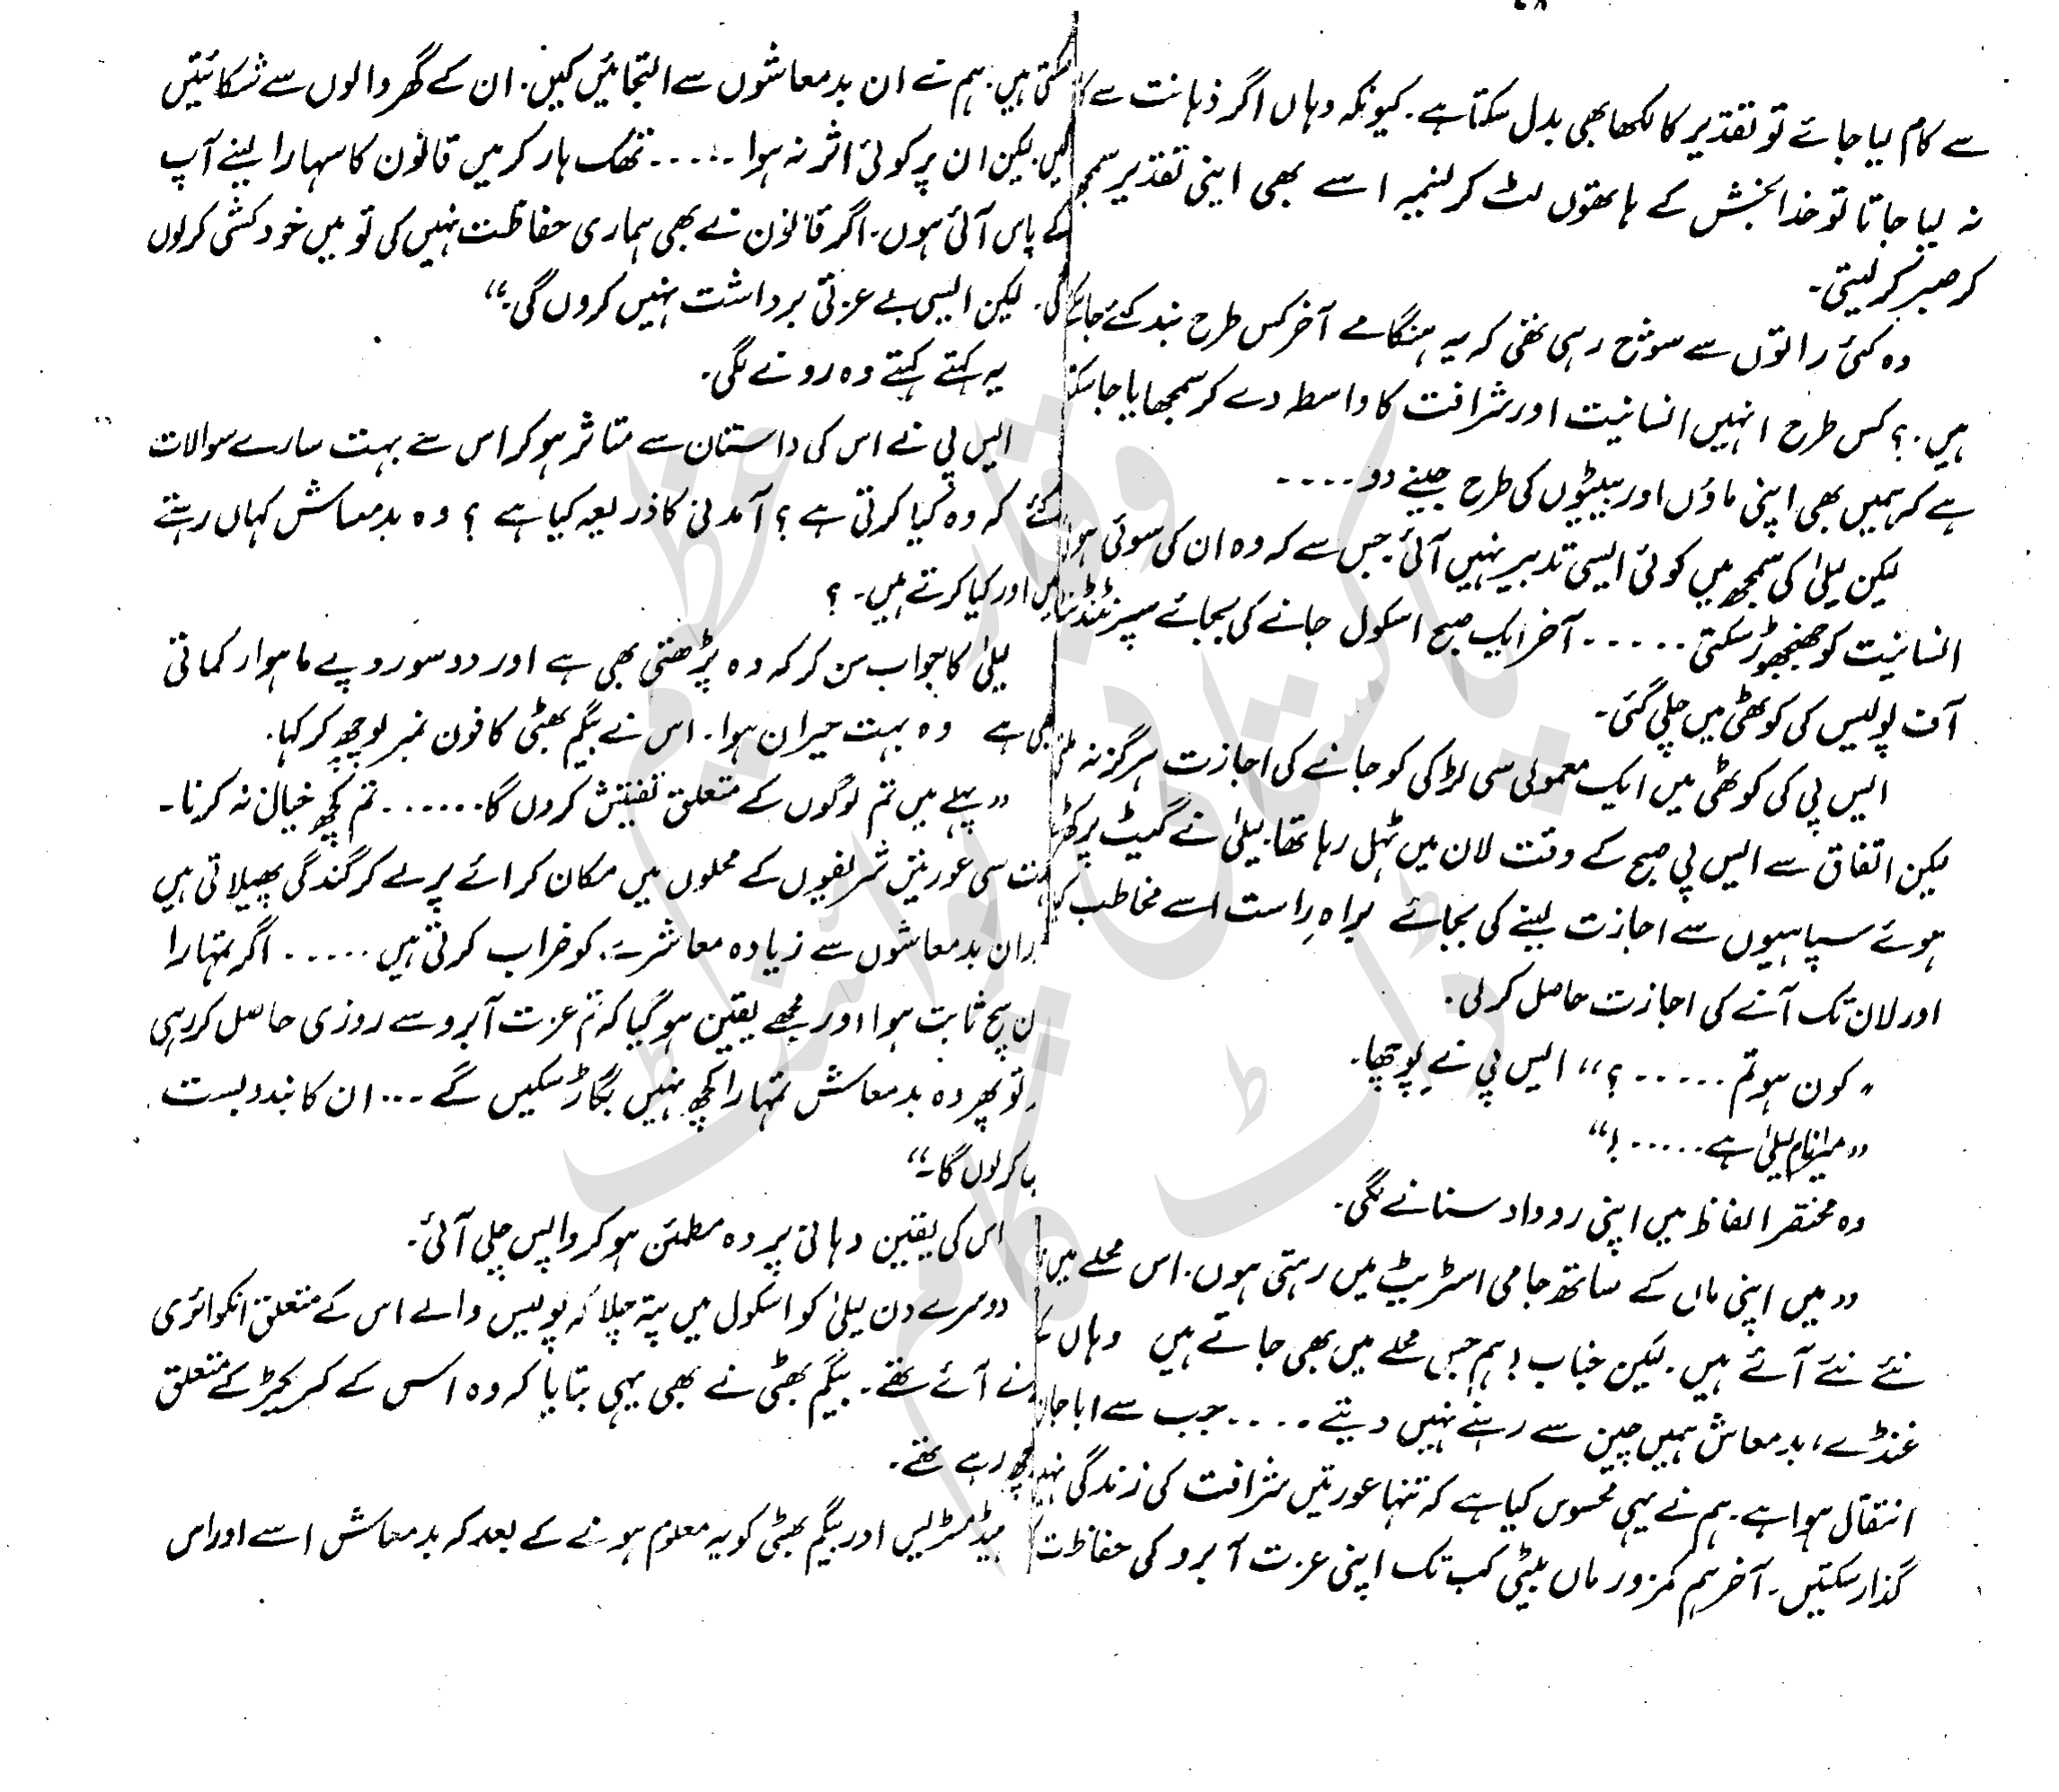 سے کام لیا جائے تو تقدیر کا لکھا بھی بدل سکتا ہے۔ کیونکہ وہاں اگر ذہانت سے کا
نہ لیا جاتا تو خدا بخش کے ہاتھوں لٹ کر لنجیہ اسے بھی اپنی تقدیر سمجھ
کر صبر کر لیتی۔
وہ کئی راتوں سے سوچ رہی تھی کہ یہ ہنگامے آخر کس طرح بند کئے جا
ہیں۔؟ کس طرح انہیں انسانیت اور شرافت کا واسطہ دے کر سمجھایا جا سکتا
ہے کہ ہمیں بھی اپنی ماؤں اور بیٹیوں کی طرح جینے دو۔۔۔۔
لیکن لیلیٰ کی سمجھ میں کوئی ایسی تدبیر نہیں آئی۔ جس سے کہ وہ ان کی سوئی ہوئی
انسانیت کو جھنجھوڑ سکتی۔۔۔۔۔ آخر ایک صبح اسکول جانے کی بجائے سپرنٹنڈنٹ
آف پولیس کی کوٹھی میں چلی گئی۔
ایس پی کی کوٹھی میں ایک معمولی سی لڑکی کو جانے کی اجازت ہرگز نہ ملتی
لیکن اتفاق سے ایس پی صبح کے وقت لان میں ٹہل رہا تھا۔ لیلیٰ نے گیٹ پر کھڑے
ہوئے سپاہیوں سے اجازت لینے کی بجائے براہِ راست اسے مخاطب کیا
اور لان تک آنے کی اجازت حاصل کر لی۔
”کون ہو تم۔۔۔۔۔؟“ ایس پی نے پوچھا۔
”میرا نام لیلیٰ ہے۔۔۔۔۔!“
وہ مختصر الفاظ میں اپنی روداد سنانے لگی۔
”میں اپنی ماں کے ساتھ جامی اسٹریٹ میں رہتی ہوں۔ اس محلے میں
نئے نئے آئے ہیں۔ لیکن جناب! ہم جس محلے میں بھی جاتے ہیں وہاں کے
غنڈے، بدمعاش ہمیں چین سے رہنے نہیں دیتے۔۔۔۔ جب سے ابا جان
انتقال ہوا ہے۔ ہم نے یہی محسوس کیا ہے کہ تنہا عورتیں شرافت کی زندگی نہیں
گذار سکتیں۔ آخر ہم کمزور ماں بیٹی کب تک اپنی عزت آبرو کی حفاظت کر
سکتی ہیں۔ ہم نے ان بدمعاشوں سے التجائیں کیں۔ ان کے گھر والوں سے شکائتیں
کیں۔ لیکن ان پر کوئی اثر نہ ہوا۔۔۔۔۔ تھک ہار کر میں قانون کا سہارا لینے آپ
کے پاس آئی ہوں۔ اگر قانون نے بھی ہماری حفاظت نہیں کی تو میں خودکشی کر لوں
گی۔ لیکن ایسی بے عزتی برداشت نہیں کروں گی۔“
یہ کہتے کہتے وہ رونے لگی۔
ایس پی نے اس کی داستان سے متاثر ہو کر اس سے بہت سارے سوالات
کئے کہ وہ کیا کرتی ہے؟ آمدنی کا ذریعہ کیا ہے؟ وہ بدمعاش کہاں رہتے
ہیں اور کیا کرتے ہیں۔؟
لیلیٰ کا جواب سن کر کہ وہ پڑھتی بھی ہے اور دو سو روپے ماہوار کماتی
بھی ہے وہ بہت حیران ہوا۔ اس نے بیگم بھٹی کا فون نمبر پوچھ کر کہا۔
”پہلے میں تم لوگوں کے متعلق تفتیش کروں گا۔۔۔۔۔۔ تم کچھ خیال نہ کرنا۔
بہت سی عورتیں شریفوں کے محلوں میں مکان کرائے پر لے کر گندگی پھیلاتی ہیں
اور ان بدمعاشوں سے زیادہ معاشرے کو خراب کرتی ہیں۔۔۔۔۔ اگر تمہارا
ن سچ ثابت ہوا اور مجھے یقین ہو گیا کہ تم عزت آبرو سے روزی حاصل کر رہی
تو پھر وہ بدمعاش تمہارا کچھ نہیں بگاڑ سکیں گے۔۔۔ ان کا بندوبست
کر لوں گا۔“
اس کی یقین دہانی پر وہ مطمئن ہو کر واپس چلی آئی۔
دوسرے دن لیلیٰ کو اسکول میں پتہ چلا کہ پولیس والے اس کے متعلق انکوائری
نے آئے تھے۔ بیگم بھٹی نے بھی یہی بتایا کہ وہ اس کے کریکٹر کے متعلق
پوچھ رہے تھے۔
ہیڈ مسٹریس اور بیگم بھٹی کو یہ معلوم ہونے کے بعد کہ بدمعاش اسے اور اس
پاکستانی پوائنٹ
ڈاٹ کام
وقار عظیم